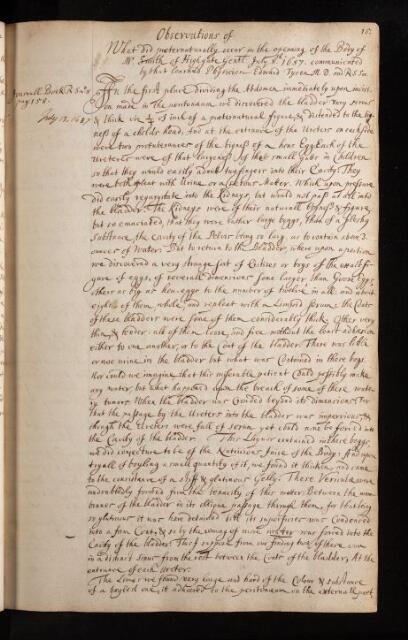 15.
Observations of
What did preternaturally occur in the opening of the Body of
Mr Smith of Highgate Gentl. July 8th 1687. communicated
by that learned Physician Edward Tyson M.D. and RSSoc.
Journall Book R. So:
pag 158.
July 13. 1687
In the first place dividing the Abdomen immediately upon incisi-
on made in the peritonaeum, we discovered the bladder very
& thick viz 1/2 of inch of a preternatural figure, & distended to the big-
ness of a childs head, And at the entrance of the Ureters on each side
were two protuberances of the bigness of a hen Egg Each of the
Ureters were of that largeness, of the small gutts in Children
so that they would easily admit two fingers into their Cavity They
were both repleat with Urine or a serous Water. Which upon pressure
did easily regurgitate into the Kidneys, but would not pass at all into
the bladder. The kidneys were of their naturall bigness & figure,
but so emaciated, that they were rather large baggs, than of a fleshy
substance, the cavity of the Pelvis being so large as to contain about 3
ounces of Water. But to return to the Bladder, where upon apertion
we discovered a very strange sort of Cistises or bags of the exact fi-
gure of eggs, of severall dimensions some larger than Goose Eggs,
others as big as hen-eggs to the number of twelve in all; and about
eight of them whole, and repleat with a Limpid serum; the Coats
of these bladders were some of them considerably thick, Others very
thin, & tender: all of them loose, and free without the least adhesion
either to one another, or to the Coat of the bladder. There was little
or no urine in the bladder but what was Contained in these bags.
Nor could we imagine that this miserable patient could possibly make
any water, but what happened upon the breach of some of these watr-
y tumors When the bladder was Crowded beyond its dimensions, For
that the passage by the Ureters into the bladder was impervious, &
though the Ureters were full of serum yet could none be forced into
the Cavity of the bladder. This Liquor contained in these baggs,
we did conjecture to be of the Nutritious Juice of the Body: And upon
tryall of boyling a small quantity of it, we found it thicken, and came
to the consistence of a stiff & glutinous Gelly. These Vesiculae were
undoubtedly formed from the tenacity of this matter: Between the mem-
branes of the bladder in its oblique passage through them, for this being
so glutinous it was here detained till its superficies was Condensed
into a firm Coat, & so by the urging of more matter was forced into the
Cavity of the bladder. This I suppose from our finding two of these Ova
in a distinct Sinus from the rest between the Coats of the bladder, At the
entrance of each Ureter.
The Liver we found very large and hard of the Colour & substance
of a boyled one, it adhered to the peritonaeum in the externall part